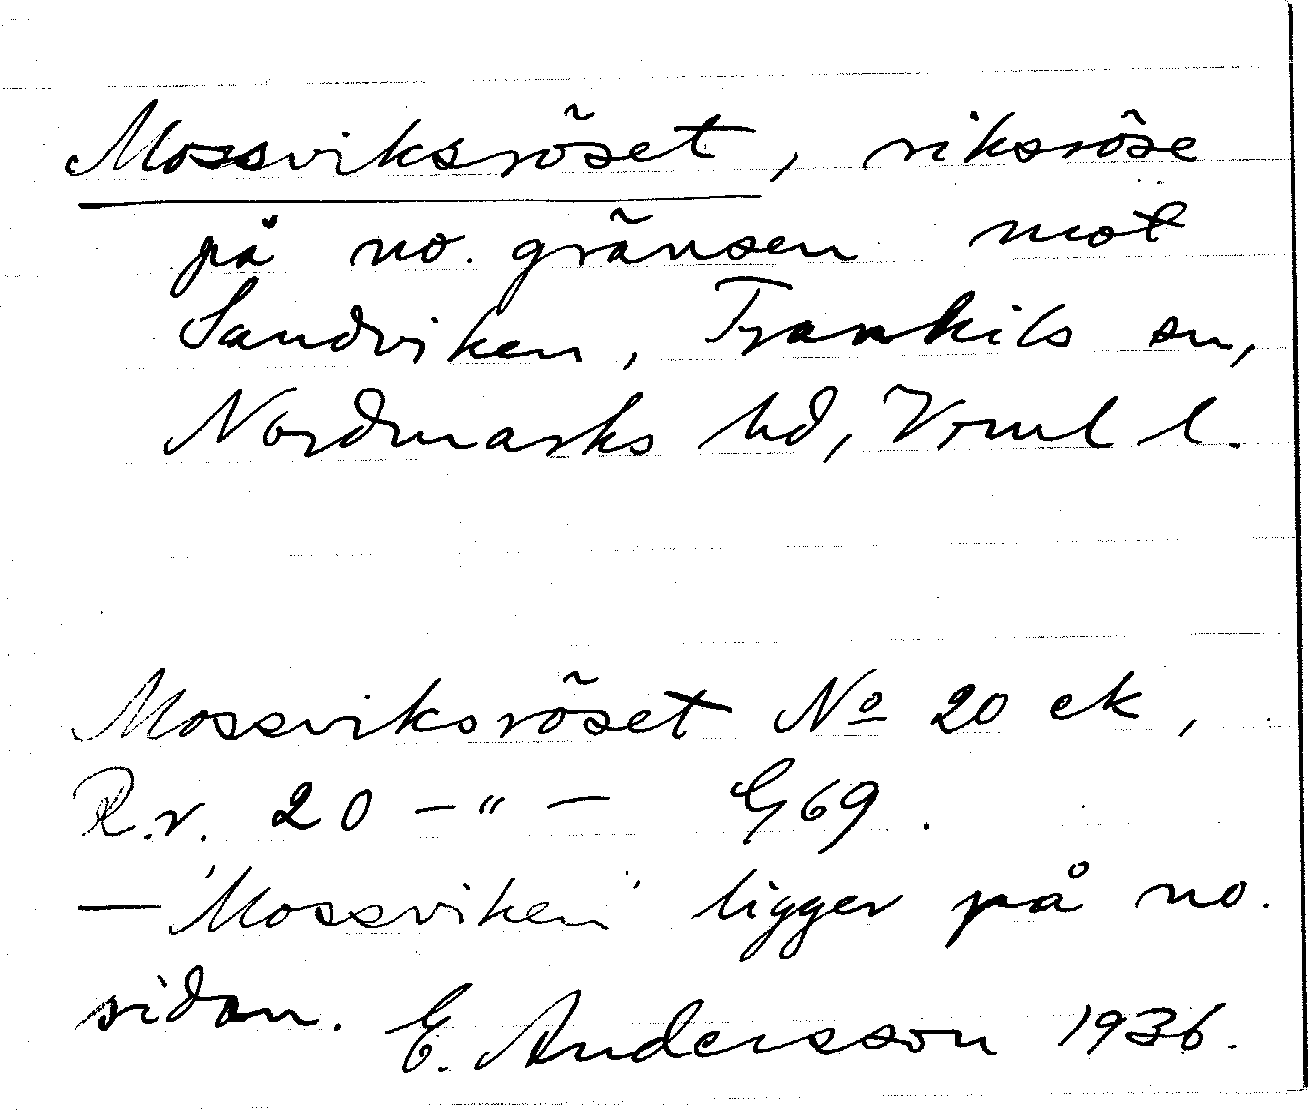 Mossviksröset, riksröse
på no. gränsen mot
Sandviken, Trankils sn,
Nordmarks hd, Vrml l.
Mossviksröset No 20 ek,
R.r. 20 —"— G69.
— 'Mossviken' ligger på no.
sidan. E. Andersson 1936.